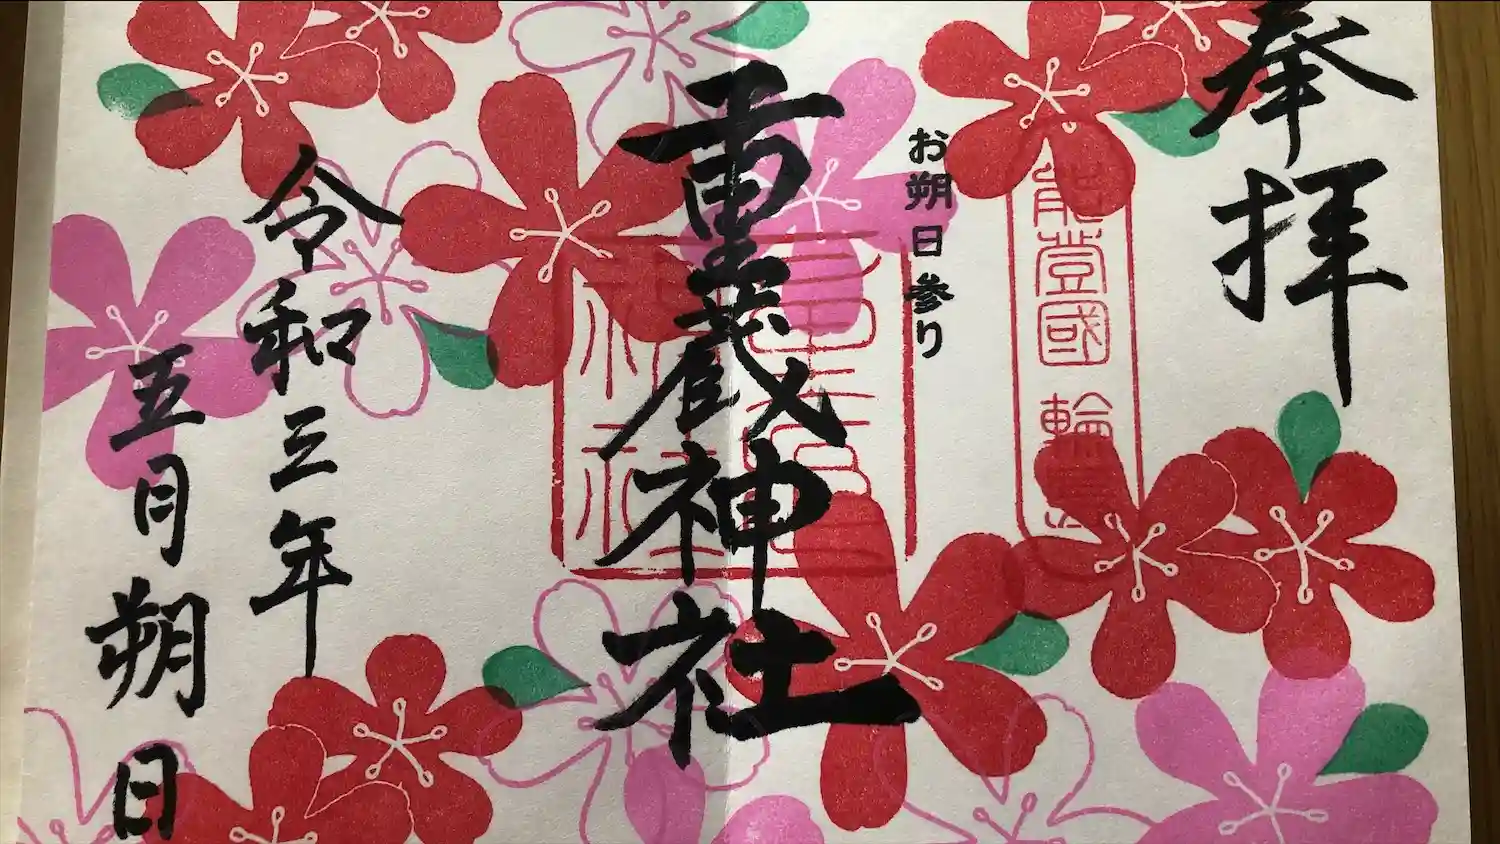 奉拝
能登國 輪
お朔日参り
重蔵神社
令和三年
五月朔日